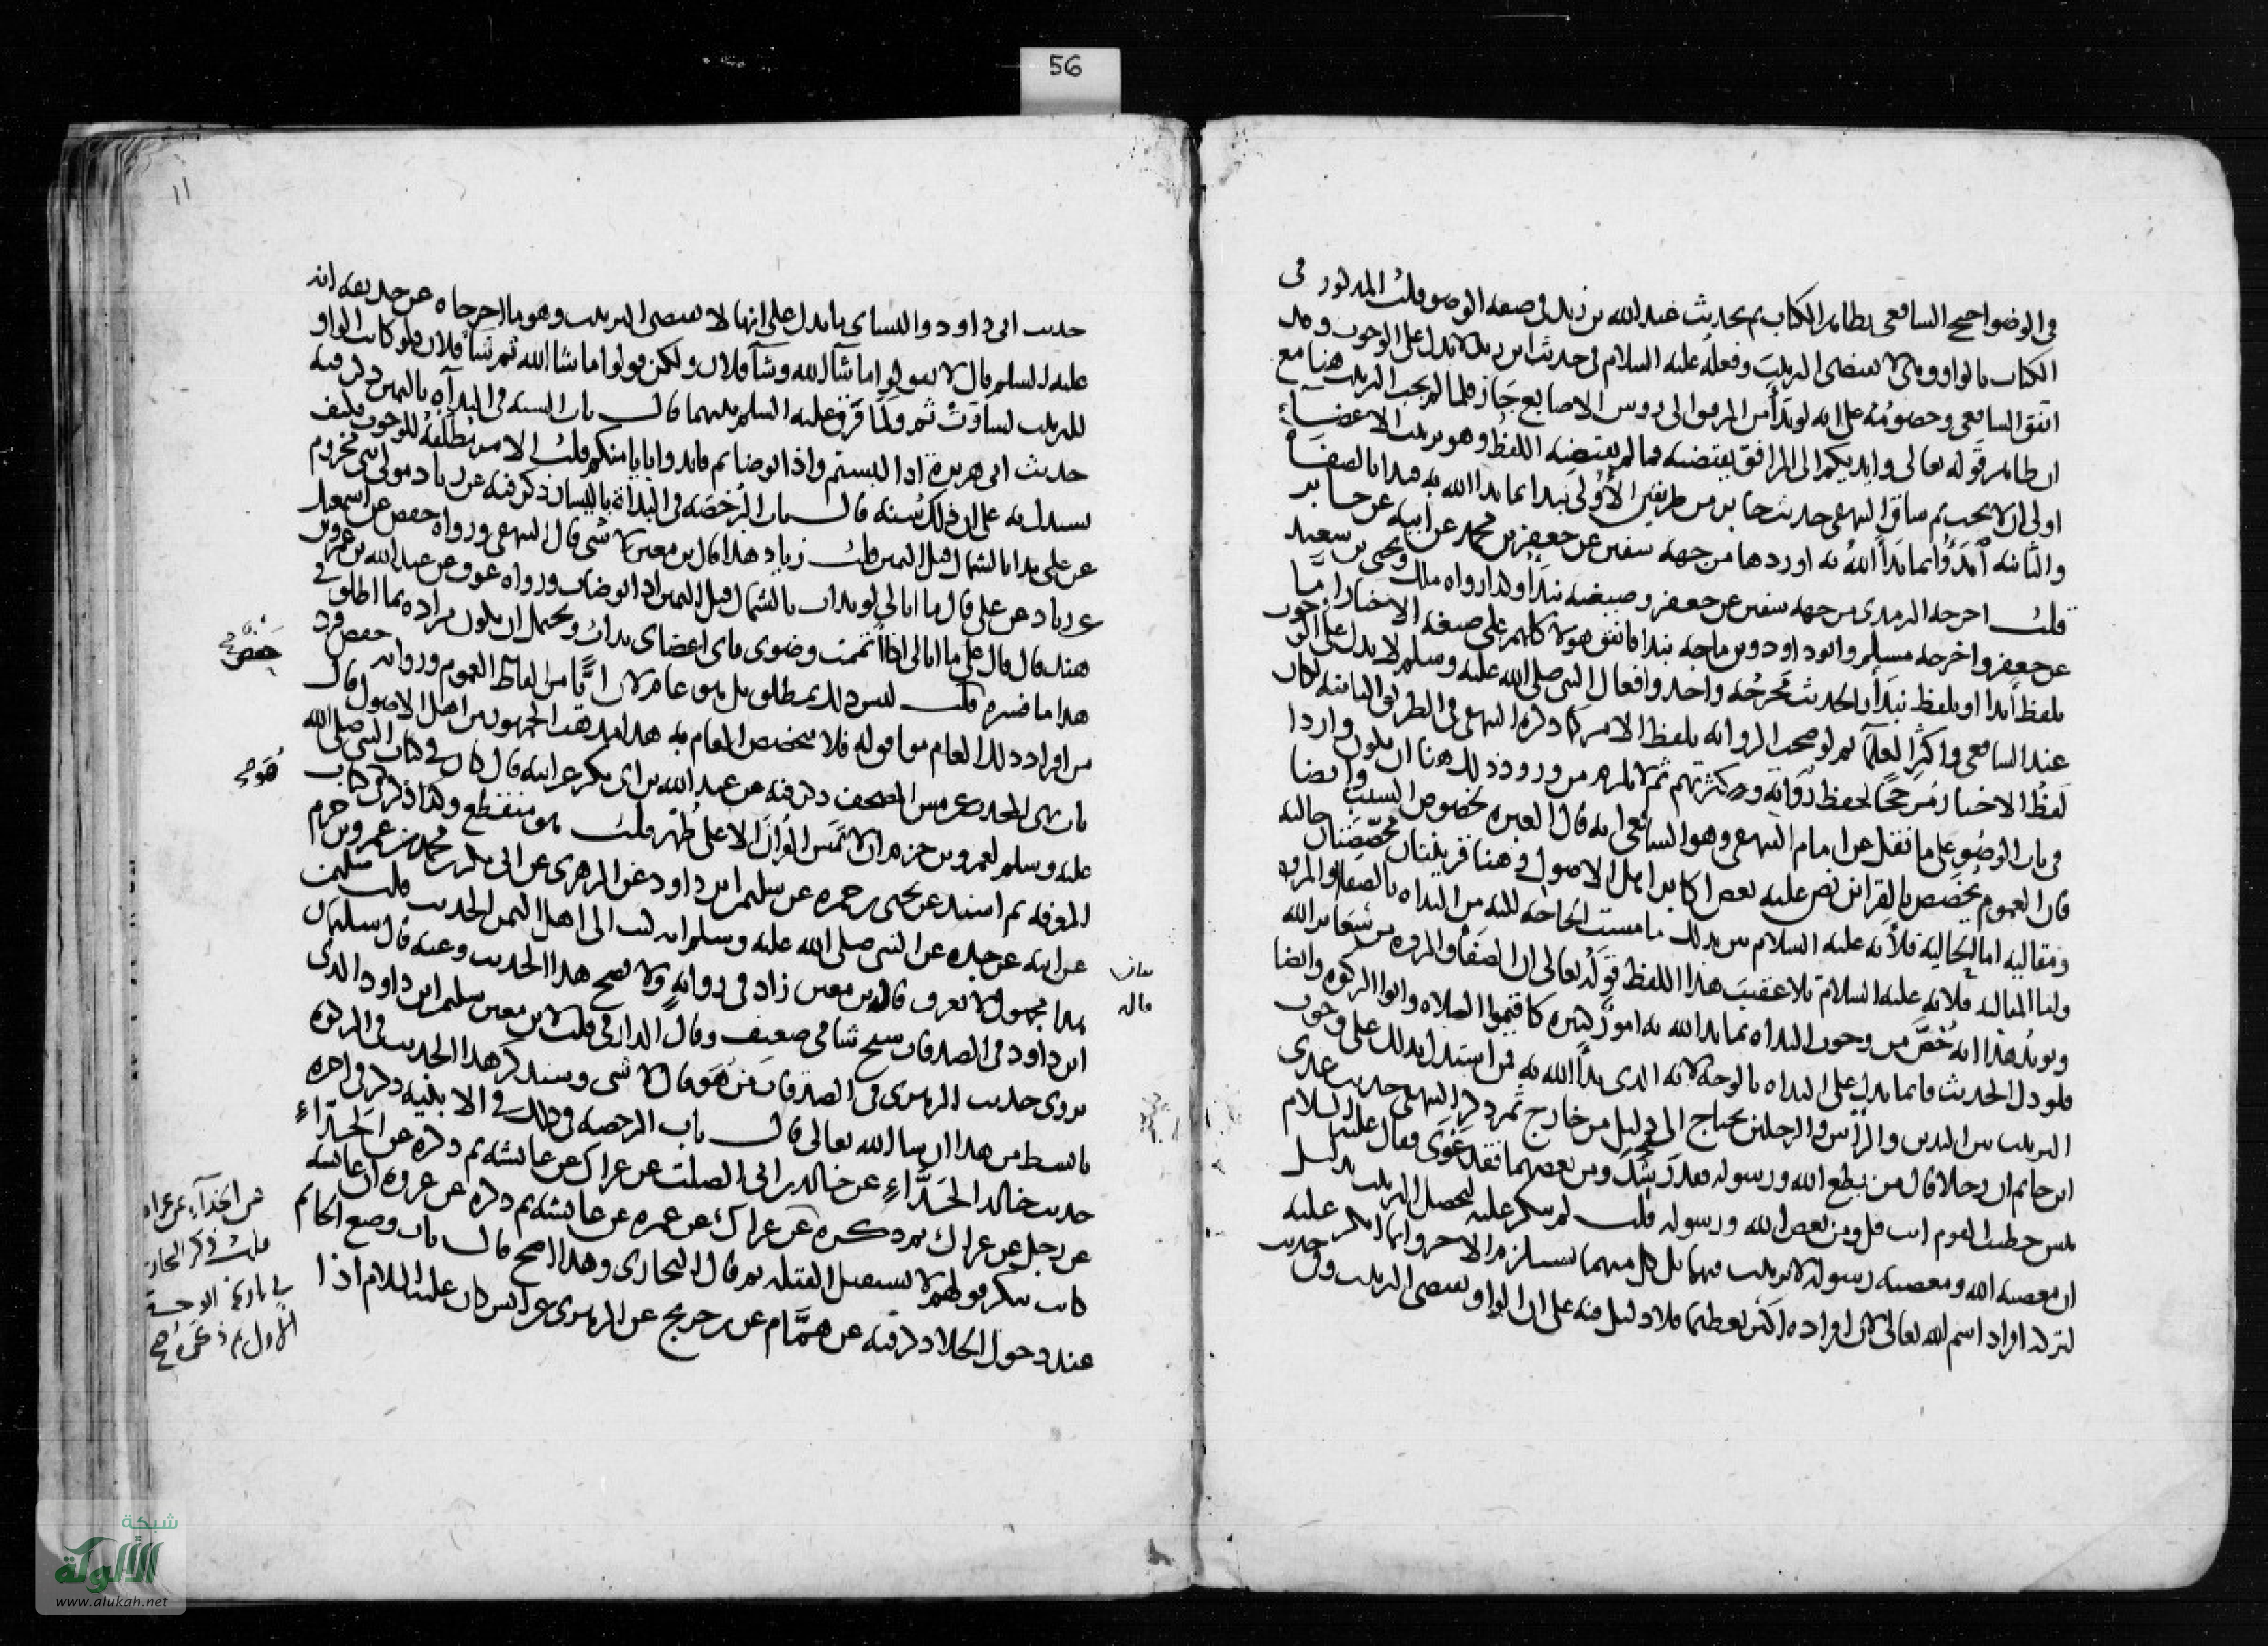 56
في الوضوء احتج الشافعي بظاهر الكتاب ثم بحديث عبد الله بن زيد في صفة الوضوء قلت المذكور في
الكتاب بالواو وهي لا تقتضي الترتيب وفعله عليه السلام في حديث ابن زيد لا يدل على الوجوب وقد
اتفق الشافعي وخصومه على انه لو بدأ من المرفق الى روس الاصابع جاز فلما لم يجب الترتيب هنا مع
ان ظاهر قوله تعالى وايديكم الى المرافق يقتضيه فما لم يقتضه اللفظ وهو ترتيب الاعضاء
اولى ان لا يجب ثم ساق البيهقي حديث جابر من طريقين الأولى نبدأ بما بدا الله به فبدا بالصفا
والثانية ابدؤا بما بدأ الله به اوردها من جهة سفين عن جعفر بن محمد عن ابيه عن جابر
قلت اخرجه الترمذي من جهة سفين عن جعفر وصيغته نبدأ وكذا رواه ملك ويحيى بن سعيد
عن جعفر واخرجه مسلم وابو داود وبن ماجة نبدا فاتفق هولا كلهم على صيغة الاخبار اما
بلفظ أبدا او بلفظ نبدأ والحديث مخرجه واحد وافعال النبي صلى الله عليه وسلم لا يدل على الوجوب
عند الشافعي واكثر العلماء ثم لو صحت الرواية بلفظ الامر كما ذكره البيهقي في الطريق الثانية لكان
لفظ الاخبار مرجحا لحفظ رواته وكثرتهم ثم لا يلزم من ورود ذلك هنا ان يكون واردا
في باب الوضوء على ما نقل عن امام البيهقي وهو الشافعي انه قال العبرة بخصوص السبب وايضا
فان العموم يخصص بالقرائن نص عليه بعض اكابر اهل الاصول وهنا قرينتان مخصصتان حالية
ومقالية اما الحالية فلأنه عليه السلام بين بذلك ما مست الحاجة اليه من البداه بالصفا والمروة
واما المقالية فلانه عليه السلام تلا عقيب هذا اللفظ قوله تعالى ان الصفا والمروة من شعائر الله
ويويد هذا انه خص من وجوب البداه بما بدا الله به امور كثيرة كاقيموا الصلاه واتوا الزكوة وايضا
فلو دل الحديث فانما يدل على البداه بالوجه لانه الذي بدأ الله به فمن استدل بذلك على وجوب
الترتيب بين اليدين والرأس والرجلين يحتاج الى دليل من خارج ثم ذكر البيهقي حديث عدي
ابن حاتم ان رجلا قال من يطع الله ورسوله فقد رشد ومن يعصهما فقد غوى فقال عليه السلام
بئس خطيب القوم انت قل ومن يعص الله ورسوله قلت لم ينكر عليه لتحصل الترتيب بدليل
ان معصية الله ومعصية رسوله لا ترتيب فيهما بل كل منهما تستلزم الاخرى وانما انكر عليه
لتركه افراد اسم الله تعالى لان افراده اكثر تعظيما فلا دليل فيه على ان الواو تقتضي الترتيب وفي حديث
١١
حديث ابي داود والنسائي ما يدل على انها لا تقتضي الترتيب وهو ما اخرجاه عن حذيفة انه
عليه السلم قال لا تقولوا ما شاء الله وشاء فلان ولكن قولوا ما شا الله ثم شاء فلان فلو كانت الواو
للترتيب لساوت ثم ولما فرق عليه السلم بينهما قال باب السنة في البداءه باليمين ذكر فيه
حديث ابي هريرة اذا لبستم واذا توضاتم فابدوا بايامنكم قلت الامر مطلقه للوجوب فكيف
يستدل به على ان ذلك سنة قال باب الرخصة في البدأة باليسار ذكر فيه عن زياد مولى بني مخزوم
عن علي بدا بالشمال قبل اليمين قلت زياد هذا قال بن معين لا شي قال البيهقي ورواه حفص عن اسمعيل
عن زياد عن علي قال ما ابالي لو بدات بالشمال قبل اليمين اذا توضات ورواه عوف عن عبد الله بن عمرو بن
هند قال قال علي ما ابالي اذا اتممت وضوى باى اعضاى بدات ويحتمل ان يكون مراده بما اطلق في
هذا ما فسره قلت ليس ذلك بمطلق بل هو عام لان ايا من الفاظ العموم ورواية حفص فرد
من افراد ذلك العام موافق له فلا يخصص العام به هذا مذهب الجمهور من اهل الاصول قال
باب نهى المحدث عن مس المصحف ذكر فيه عن عبد الله بن ابي بكر عن ابيه قال كان في كتاب النبي صلى الله
عليه وسلم لعمرو بن حزم ان لا تمس القران الا على طهر قلت هو منقطع وكذا ذكره في كتاب
المعرفه ثم اسند عن يحيى بن حمزه عن سليمن ابن داود عن الزهري عن ابي بكر بن محمد بن عمرو بن حزم
عن ابيه عن جده عن النبي صلى الله عليه وسلم انه كتب الى اهل اليمن الحديث قلت سليمن
هذا مجهول لا يعرف قاله بن معين زاد في رواية ولا يصح هذا الحديث وعنه قال سليمان
ابن داود في الصدقات شيخ شامي ضعيف وقال الدارمي قلت لابن معين سليمن ابن داود الذي
يروى حديث الزهري في الصدقات من هو قال لا شى وسنذكر هذا الحديث في الزكوة
بابسط من هذا ان شا الله تعالى قال باب الرخصة في ذلك في الابنية ذكر في اخره
حديث خالد الحذاء عن خالد بن ابي الصلت عن عراك عن عائشة ثم ذكره عن الحذاء
عن رجل عن عراك ثم ذكره عن عراك عن عمرة عن عائشة ثم ذكره عن عروه ان عائشة
كانت تنكر قولهم لا تستقبل القبلة ثم قال البخاري وهذا اصح قال باب وضع الخاتم
عند دخول الخلا ذكر فيه عن همام عن بن جريج عن الزهري عن انس كان عليه السلام اذا
حفص صح
هو صح
عن الحذاء عن عراك
قلت ذكر البخاري
في تاريخه الوجه
الاول
شبكة
الألوكة
www.alukah.net